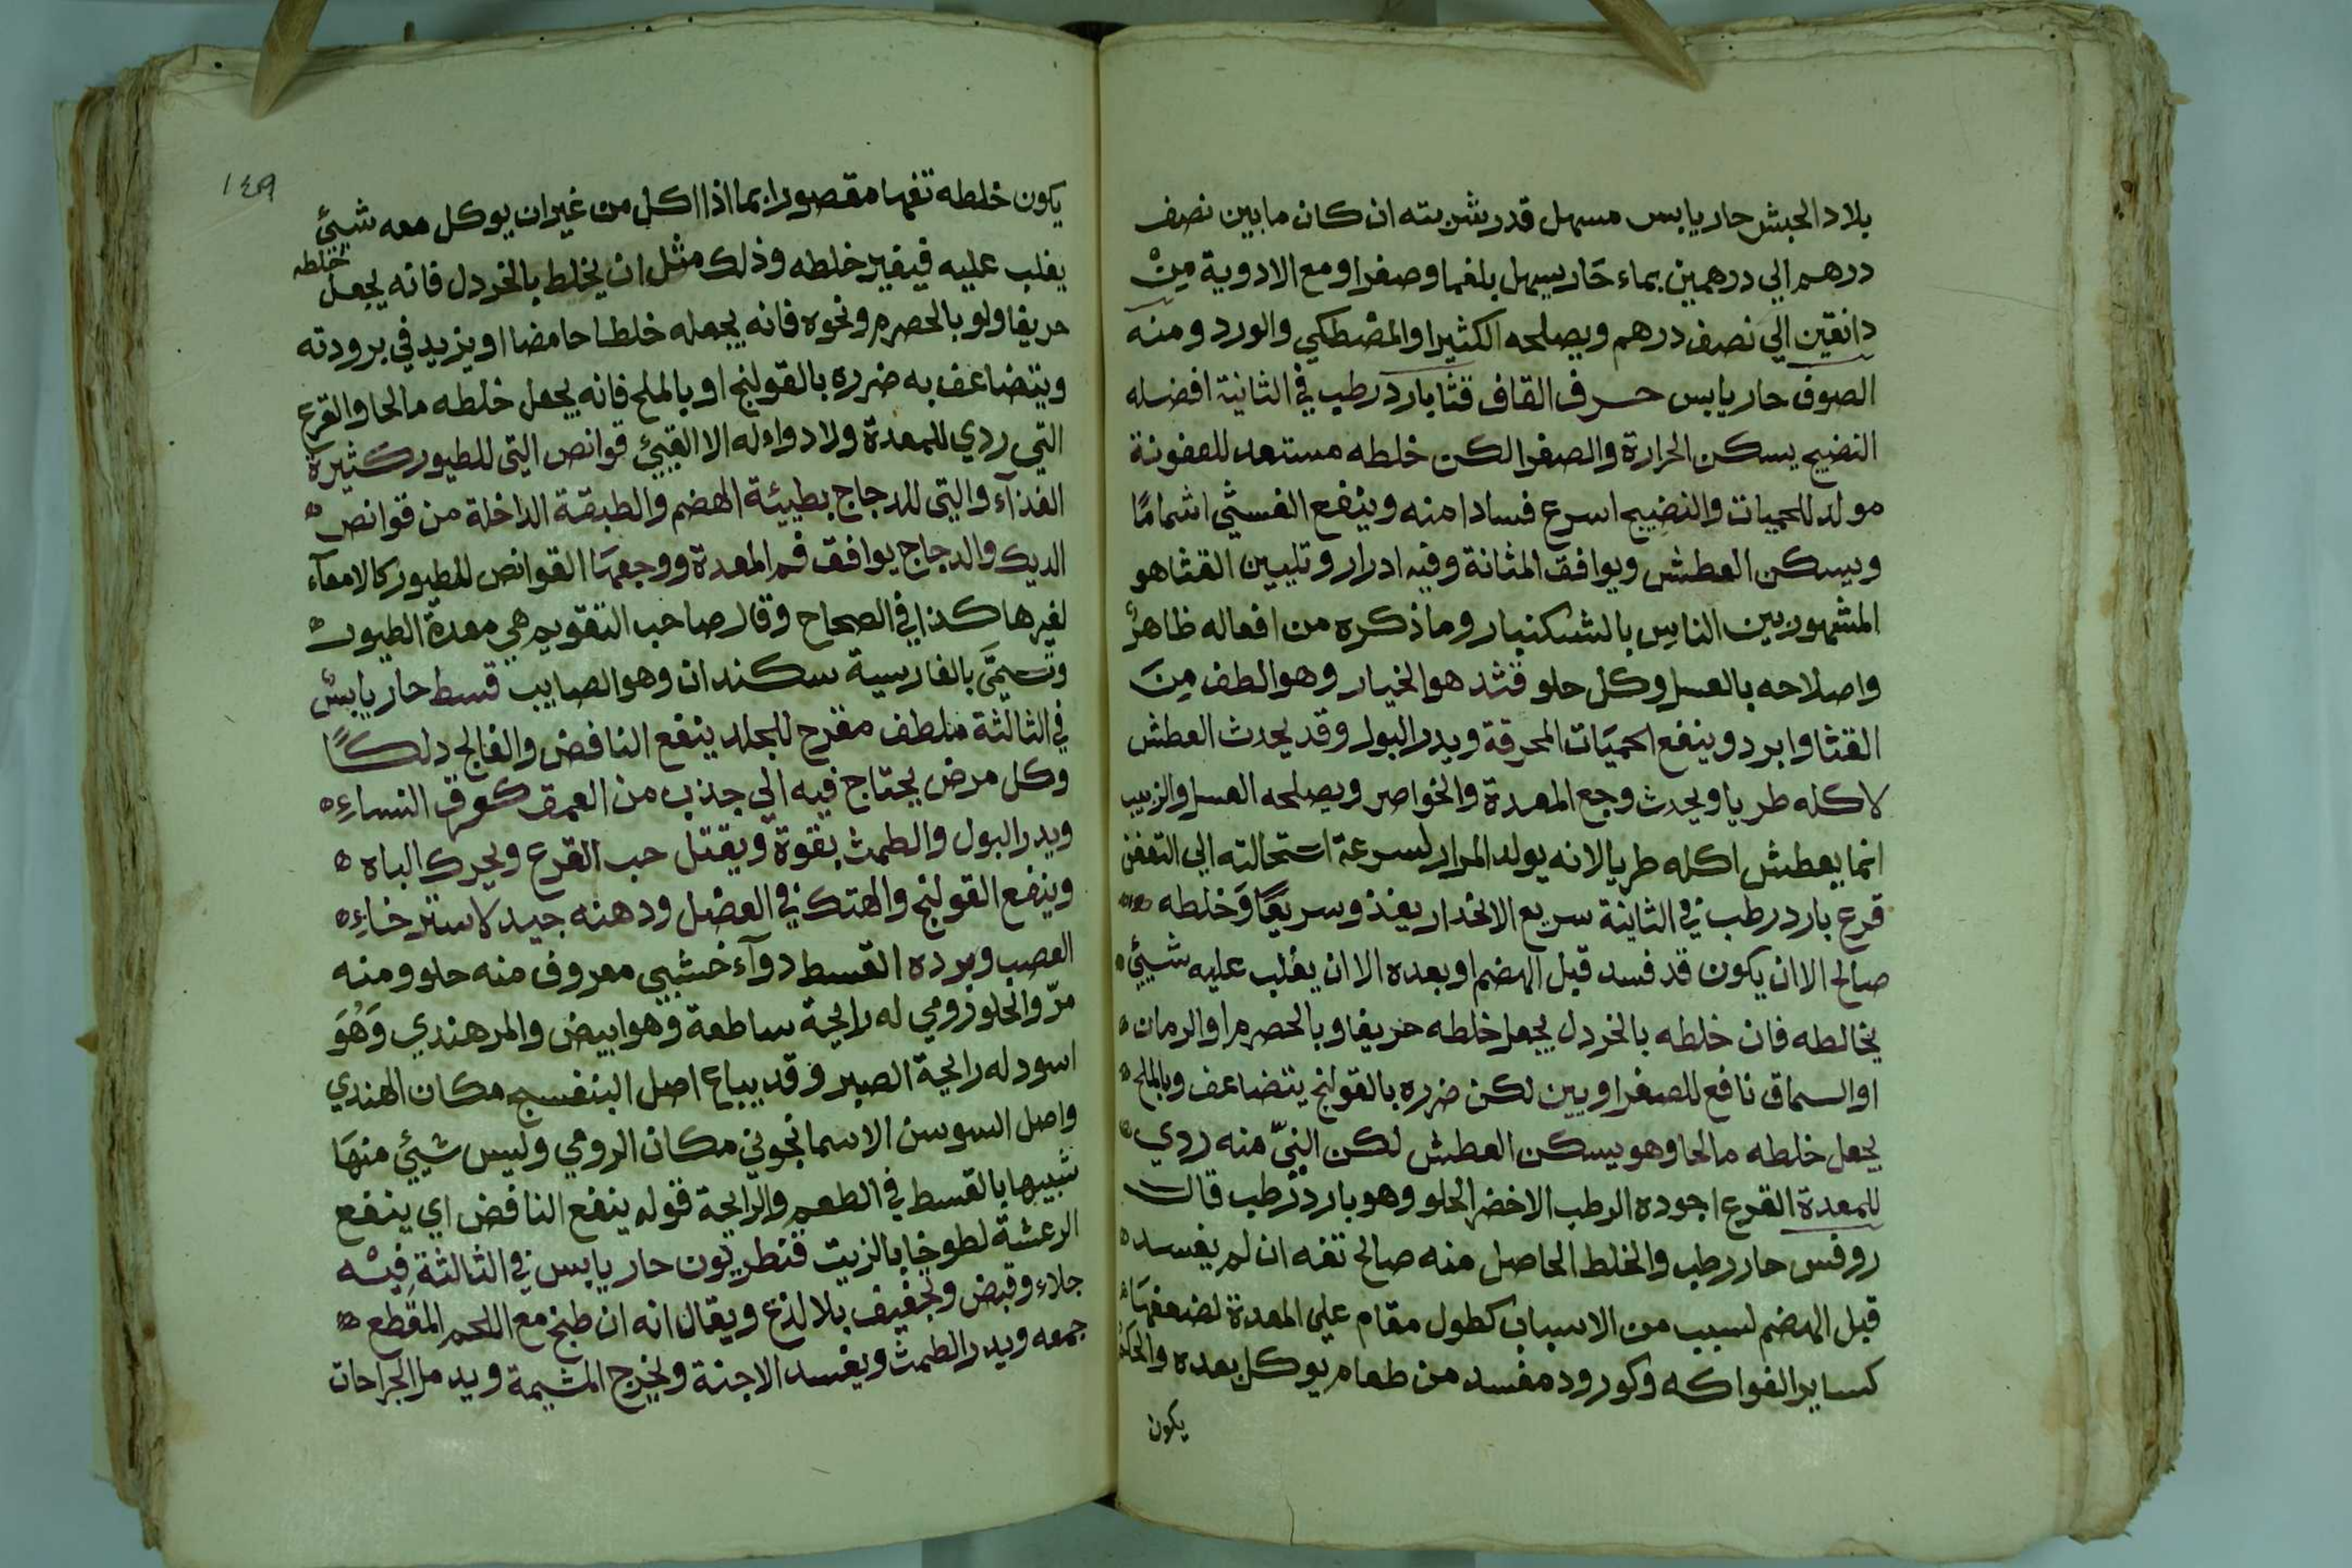 بلاد الحبش حار يابس مسهل قدر شربته ان كان ما بين نصف
درهم الي درهمين بماء حَار يسهل بلغما وصفرا ومع الادوية مِنْ
دانقين الي نصف درهم ويصلحه الكثيرا والمصْطكي والورد ومنه
الصوف حار يابس حرف القاف قثا بارد رطب في الثانية افضله
النضيج يسكن الحرارة والصفرا لكن خلطه مستعد للعفونة
مولد للحميات والنضيج اسرع فسادا منه وينفع الغشي اشمامًا
ويسكن العطش ويوافق المثانة وفيه ادرار وتليين القثا هو
المشهور بين الناس بالشكنبار وما ذكره من افعاله ظاهرٌ
واصلاحه بالعسل وكل حلو قثد هو الخيار وهو الطف مِنَ
القثا وابرد وينفع الحميَات المحرقة ويدر البول وقد يحدث العطش
لاكله طريا ويحدث وجع المعدة والخواصر ويصلحه العسل والزبيب
انما يعطش اكله طريا لانه يولد المرار لسرعة استحالته الي التعفن
قرع بارد رطب في الثانية سريع الانحدار يغذو سريعًا وَخلطه
صالح الا ان يكون قد فسد قبل الهضم او بعده الا ان يغلب عليه شيئ
يخالطه فان خلطه بالخردل يجعل خلطه حريفا وبالحصرم او الرمان
او السماق نافع للصفراويين لكن ضرره بالقولنج يتضاعف وبالملح
يجعل خلطه مالحا وهو يسكن العطش لكن النيّ منه ردي
للمعدة القرع اجوده الرطب الاخضر الحلو وهو بارد رطب قال
روفس حار رطب والخلط الحاصل منه صالح تفه ان لم يفسد
قبل الهضم لسبب من الاسباب كطول مقام علي المعدة لضعفهَا
كساير الفواكه وكورود مفسد من طعام يوكل بعده
يكون
١٤٩
يكون خلطه تفها مقصورا بما اذا اكل من غير ان يوكل معه شيئ
يغلب عليه فيغير خلطه وذلك مثل ان يخلط بالخردل فانه يجعل خلطه
حريفا ولو بالحصرم ونحوه فانه يجعله خلطا حامضا او يزيد في برودته
ويتضاعف به ضرره بالقولنج او بالملح فانه يجعل خلطه مالحا والقرع
التي ردي للمعدة ولا دواء له الا القيئ قوانص التي للطيور كثيرة
الغذآء والتي للدجاج بطيئة الهضم والطبقة الداخلة من قوانص
الديك والدجاج يوافق فم المعدة ووجعهَا القوانص للطيور كالامعآء
لغيرها كذا في الصحاح وقال صاحب التقويم هي معدة الطيور
وتسمَّى بالفارسية سكندان وهو الصايب قسط حار يابسٌ
في الثالثة ملطف مقرح للجلد ينفع النافض والفالج دلكًا
وكل مرض يحتاج فيه الي جذب من العمق كعرق النساءِ
ويدر البول والطمث بقوة ويقتل حب القرع ويحرك الباه
وينفع القولنج والهتك في العضل ودهنه جيد لاسترخاءِ
العصب وبرده القسط دوآء خشبي معروف منه حلو ومنه
مرّ والحلو رومي له رايحة ساطعة وهو ابيض والمر هندي وَهُوَ
اسود له رايحة الصبر وقد يباع اصل البنفسج مكان الهندي
واصل السوسن الاسمانجوني مكان الرومي وليس شيئ منهَا
شبيها بالقسط في الطعم والرّايحة قوله ينفع النافض اي ينفع
الرعشة لطوخا بالزيت قنطريون حار يابس في الثالثة فِيْه
جلاء وقبض وتجفيف بلا لذع ويقال انه ان طبخ مع اللحم المقطع
جمعه ويدر الطمث ويفسد الاجنة ويخرج المشيمة ويدمل الجراحات